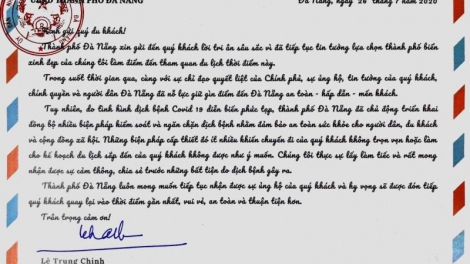 UBND THÀNH PHỐ ĐÀ NẴNG
Đà Nẵng, ngày 26 tháng 7 năm 2020
Kính gửi quý du khách!
Thành phố Đà Nẵng xin gửi đến quý khách lời tri ân sâu sắc vì đã tiếp tục tin tưởng lựa chọn thành phố biển
xinh đẹp của chúng tôi làm điểm đến tham quan du lịch thời điểm này.
Trong suốt thời gian qua, cùng với sự chỉ đạo quyết liệt của Chính phủ, sự ủng hộ, tin tưởng của quý khách,
chính quyền và người dân Đà Nẵng đã nỗ lực giữ gìn điểm đến Đà Nẵng an toàn - hấp dẫn - mến khách.
Tuy nhiên, do tình hình dịch bệnh Covid 19 diễn biến phức tạp, thành phố Đà Nẵng đã chủ động triển khai
đồng bộ nhiều biện pháp kiểm soát và ngăn chặn dịch bệnh nhằm đảm bảo an toàn sức khỏe cho người dân, du khách
và cộng đồng xã hội. Những biện pháp cấp thiết đó ít nhiều khiến chuyến đi của quý khách không trọn vẹn hoặc làm
cho kế hoạch du lịch sắp đến của quý khách không được như ý muốn. Chúng tôi thực sự lấy làm tiếc và rất mong
nhận được sự cảm thông, chia sẻ trước những bất tiện do dịch bệnh gây ra.
Thành phố Đà Nẵng luôn mong muốn tiếp tục nhận được sự ủng hộ của quý khách và hy vọng sẽ được đón tiếp
quý khách quay lại vào thời điểm gần nhất, vui vẻ, an toàn và thuận tiện hơn.
Trân trọng cảm ơn!
Lê Trung Chinh